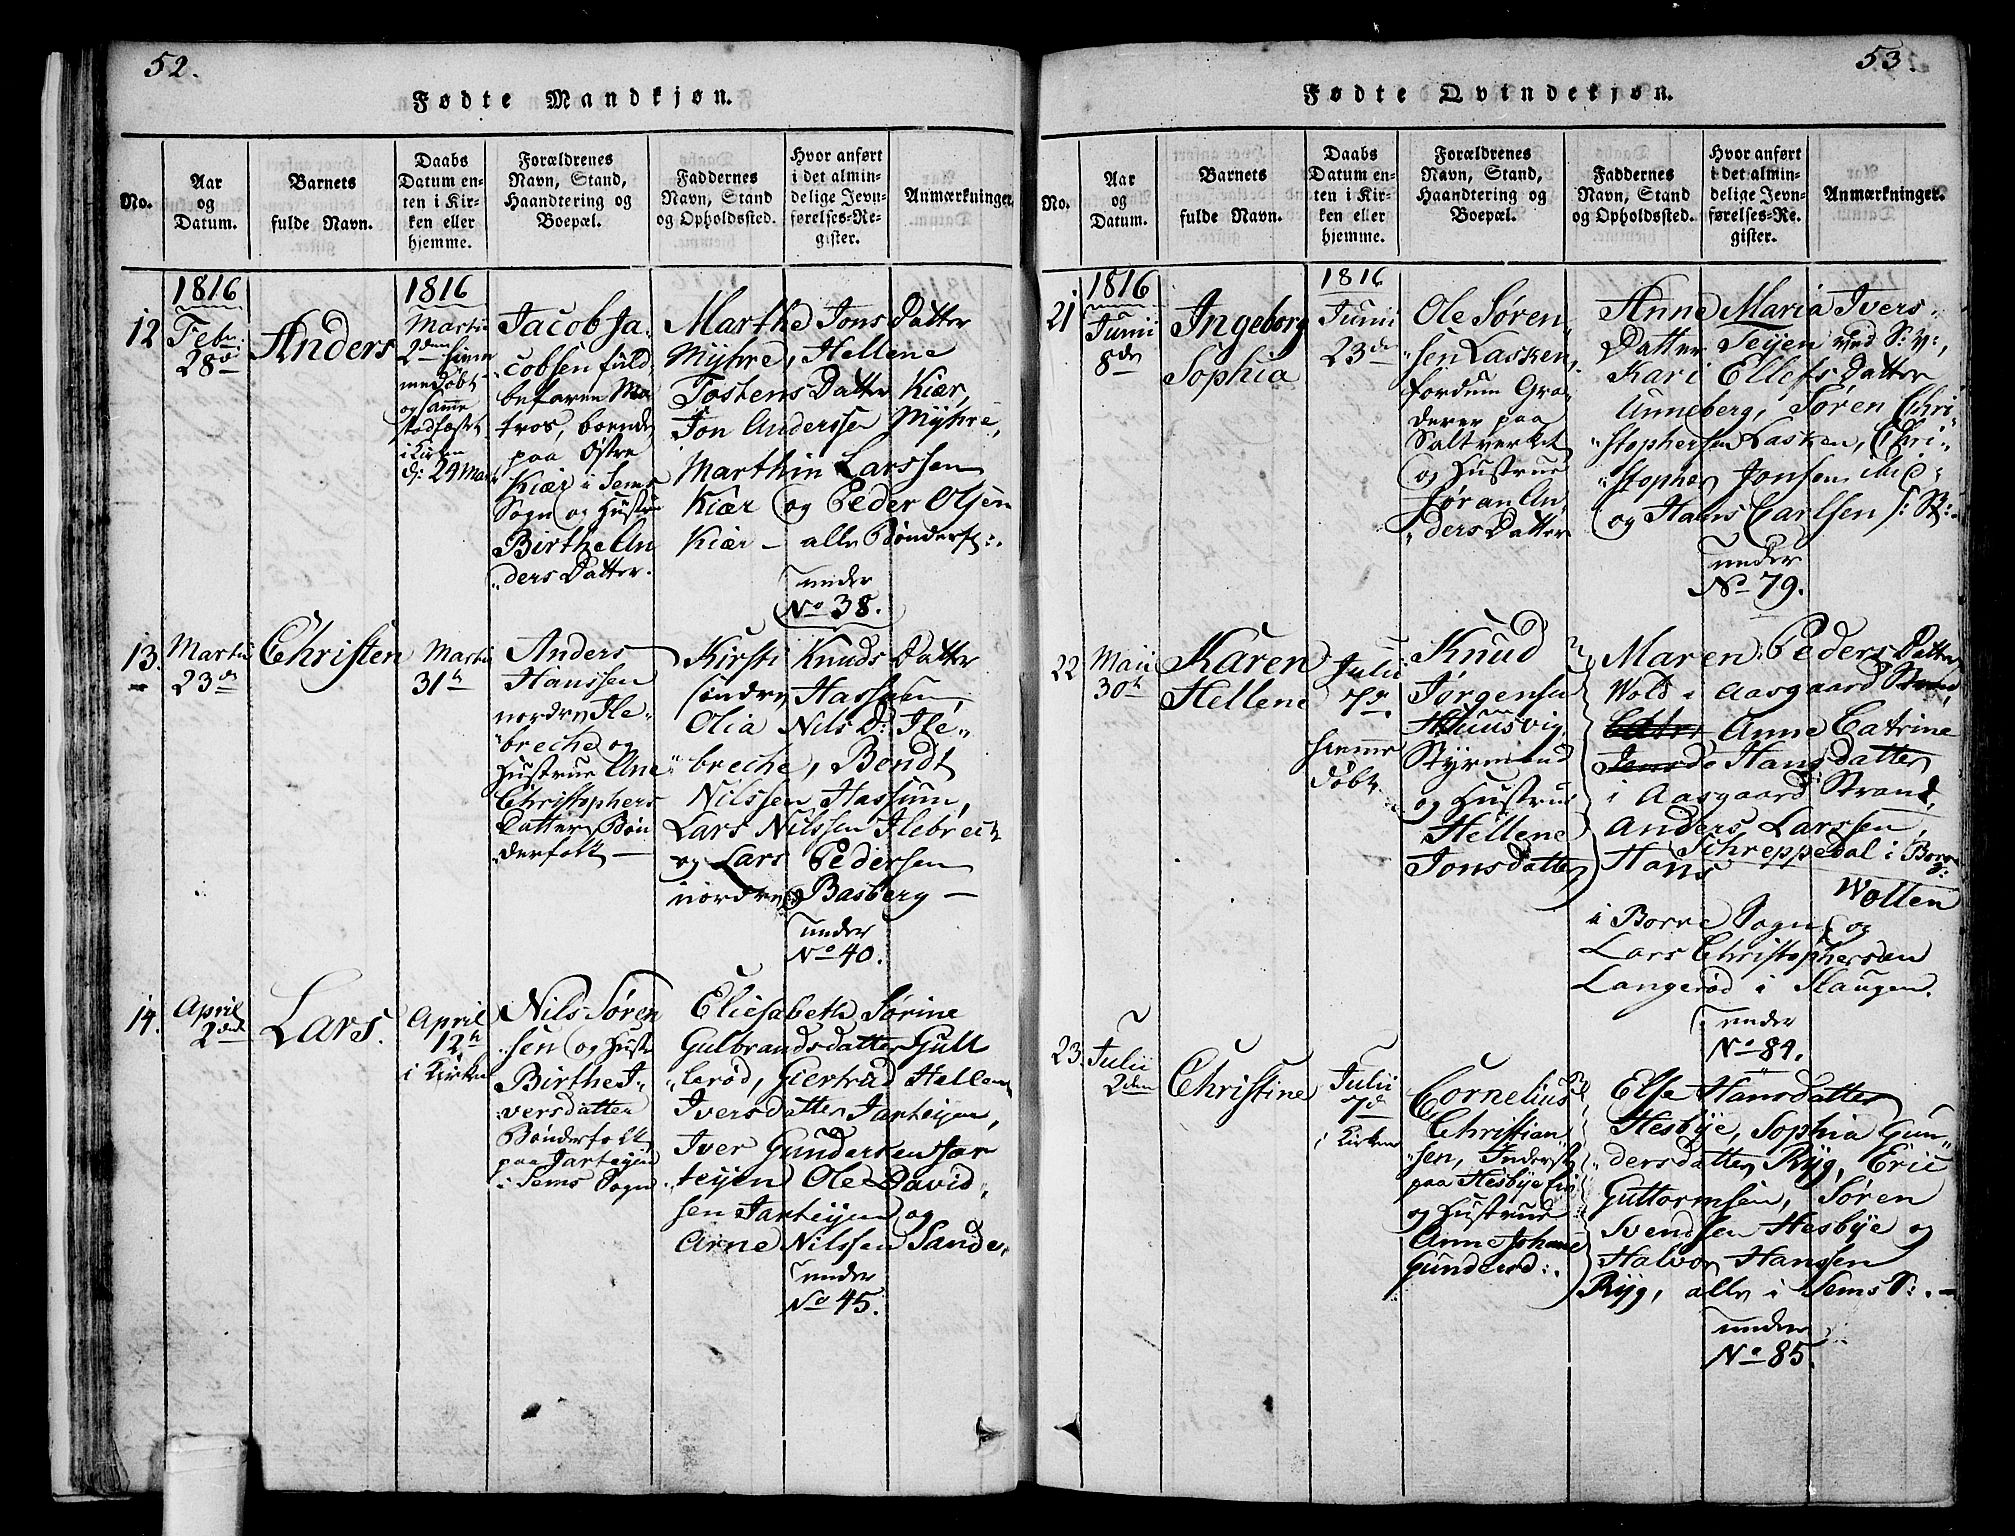 52.
Fødte Mandkjøn.
No.
Aar
og
Datum.
Barnets
fulde Navn.
Daabs
Datum en-
ten i Kir-
ken eller
hjemme.
Forældrenes
Navn, Stand,
Haandtering og
Boepæl.
Faddernes
Navn, Stand
og Opholdssted.
Hvor anført
i det almin-
delige Jevn-
førelses-Re-
gister.
Anmærkninger.
12
1816
Febr:
28de
Anders
1816
Martii
2den hiem-
medøbt
og samme
stadfæstet
i Kirken
d: 24 Mart
Jacob Ja-
cobsen fuld
befaren Ma-
tros, boende
paa Østre
Kiær i Sems
Sogn og Hustrue
Birthe An
ders Datter.
Marthe Jons Datter
Myhre, Hellene
Tostens Datter Kiær,
Jon Anderssen Myhre,
Marthin Larssen
Kiær og Peder Olsen
Kiær - alle Bønderf:.
under
No 38.
13.
Martii
23de
Christen
Martii
31te
Anders
Hanssen
nordre Ile-
breche og
Hustrue Ane
Christophers
Datter Bøn
derfolk —
Kirsti Knuds Datter
søndre Hassum,
Olia Nils D: Ile-
breche, Bendt
Nilssen Hassum,
Lars Nilssen Ilebrech
og Lars Pedersen
nordre Basberg —
under
No 40.
14.
April
2den
Lars.
April
12te
i Kirken
Nils Søren
sen og Hustr
Birthe I-
versdatter
Bønderfolk
paa Jarteijen
i Sems Sogn
Eliesabeth Sørine
Gulbrandsdatter Gull
lerød, Giertrud Hellene
Iversdatter Jarteijen,
Iver Gundersen Jar
teijen Ole David
sen Jarteijen og
Arne Nilssen Sande.
under
No 45.
53.
Fødte Qvindekjøn.
No.
Aar
og
Datum.
Barnets
fulde Navn.
Daabs
Datum en-
ten i Kir-
ken eller
hjemme.
Forældrenes
Navn, Stand,
Haandtering og
Boepæl.
Faddernes
Navn, Stand
og Opholdssted.
Hvor anført
i det almin-
delige Jevn-
førelses-Re-
gister.
Anmærkninger.
21
1816
Junii
8de
Ingeborg
Sophia
1816
Junii
23de
Ole Søren-
sen Lasken,
fordum Gra-
derer paa
Saltverket
og Hustrue
Jøran An-
ders Datter
Anne Maria Ivers
Datter Teijen ved S: V:,
Kari Ellefs Datter
Unneberg, Søren Chri
stophersen Lasken, Chri-
stopher Jonsen
og Hans Carlsen
under
No 79.
22
Maii
30te
Karen
Hellene
Julii
7de
hiemme
døbt
Knud
Jørgensen
Huusvig
Styrmand
og Hustrue
Hellene
Jonsdatter
Maren Peders Datter
Wold i Aasgaard Strand,
Anne Catrine
Hansdatter
i Aasgaard Strand,
Anders Larssen
Schreppedal i Borre
Hans
Wollen
i Borre Sogn, og
Lars Christophersen
Langerød i Slaugen.
under
No 84.
23.
Julii
2den
Christine
Julii
7de
i Kirken
Cornelius
Christian
sen, Inderst
paa Hesbye
og Hustrue
Anne Johane
Gundersd:.
Else Hansdatter
Hesbye, Sophia Gun-
dersdatter Ryg, Eric
Guttormsen, Søren
Svendsen Hesbye og
Halvor Hanssen
Ryg, alle i Sems S:. —
under
No 85.